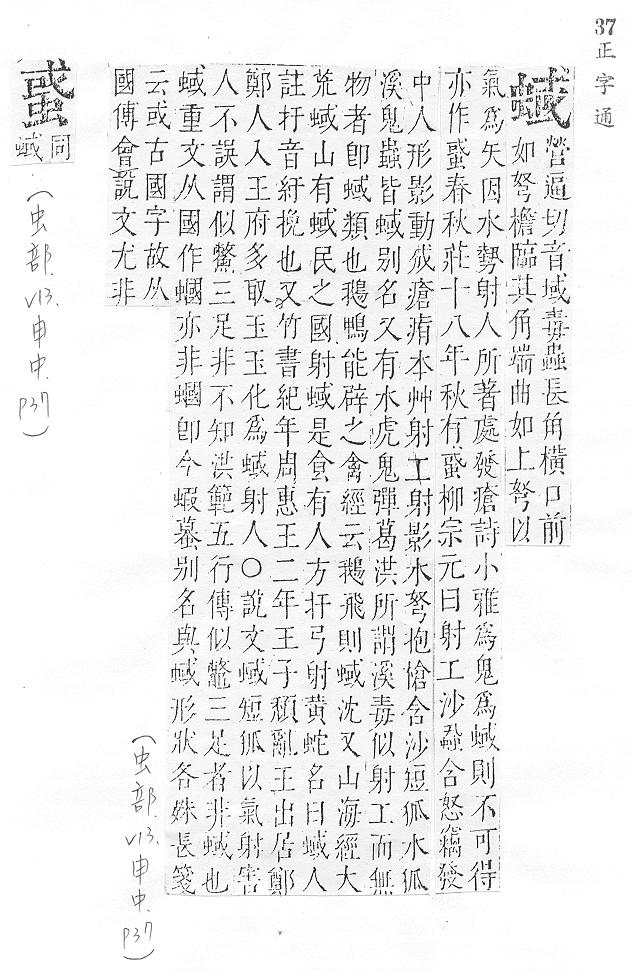 37正字通
蜮
營逼切音域毒蟲長角橫口前
如弩檐臨其角端曲如上弩以
氣爲矢因水勢射人所著處發瘡詩小雅爲鬼爲蜮則不可得
亦作蟚春秋莊十八年秋有蜚柳宗元曰射工沙蝨含怒竊發
中人形影動成瘡痏本艸射工射影水弩抱槍含沙短狐水狐
溪鬼蟲皆蜮别名又有水虎鬼彈葛洪所謂溪毒似射工而無
物者卽蜮類也鵝鴨能辟之禽經云鵝飛則蜮沈又山海經大
荒蜮山有蜮民之國射蜮是食有人方扜弓射黃蛇名曰蜮人
註扜音紆挽也又竹書紀年周惠王二年王子頹亂王出居鄭
鄭人入王府多取玉玉化爲蜮射人〇說文蜮短狐以氣射害
人不誤謂似鱉三足非不知洪範五行傳似鼈三足者非蜮也
蜮重文从國作蟈亦非蟈卽今蝦蟇别名與蜮形狀各殊長箋
云或古國字故从
國傅會說文尤非
(虫部、v13、申中、p37)
蟚
同蜮
(虫部、v13、申中、p37)